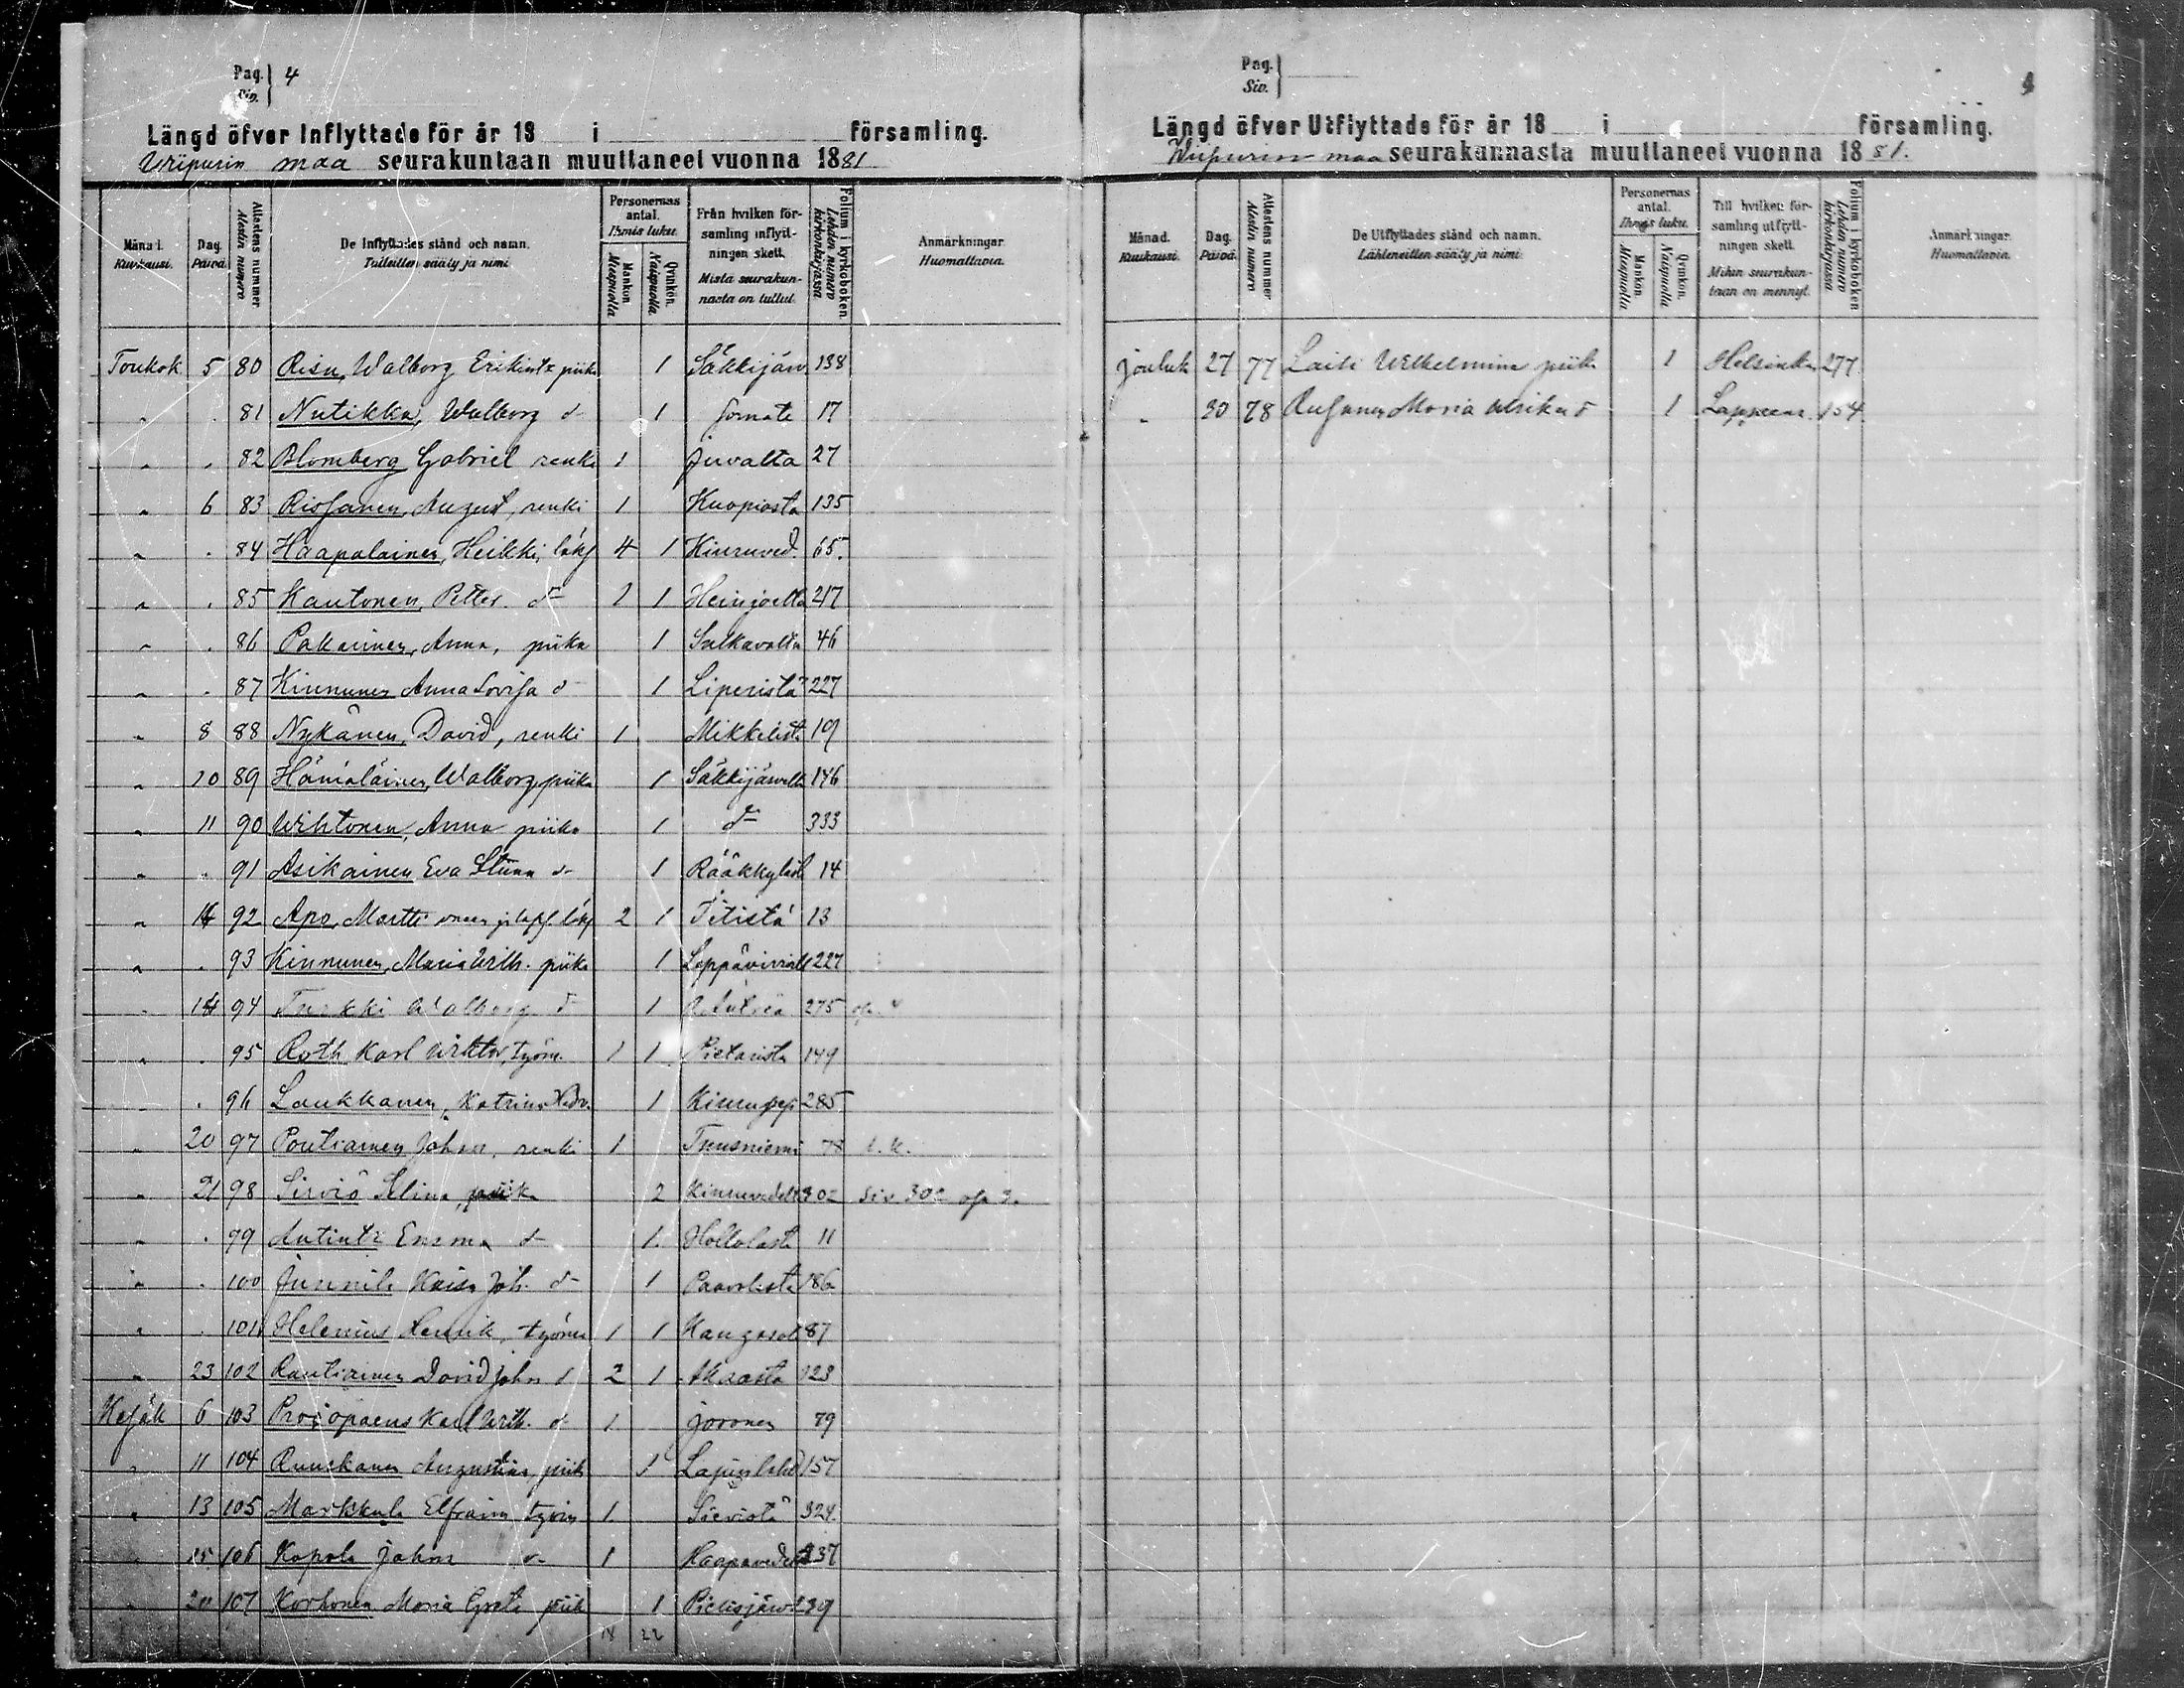 Pag. Siv. 4
Längd öfver Inflyttade för år 18 i församling.
Wiipurin maa seurakuntaan muuttaneet vuonna 1881
Månad. Kuukausi. Dag. Päivä. Attestens nummer Atestin numero De Inflyttades stånd och namn. Tulleitten sääty ja nimi Personernas antal. Ihmis luku. Mankön Miespuolia Qvinkön. Naispuolia Från hvilken församling inflyttningen skett. Mistä seurakunnasta on tullut. Folium i kyrkoboken. Lehden numero kirkonkirjassa Anmärkningar. Huomattavia.
Toukok 5 80 Risu, Walborg Erikintr piika 1 Säkkijärv 138
" . 81 Nutikka, Walborg d- 1 17
" . 82 Blomberg Gabriel renki 1 Juvalta 27
" 6 83 Risanen, August, renki 1 Kuopiosta 135
" . 84 Haapalainen, Heikki, 4 1 Kiuruved. 65.
" . 85 Kautonen, Petter. d- 1 1 Heinjoelta 217
" . 86 Pakarinen, Anna, piika 1 Sulkavalta 46
" . 87 Kinnunen Anna Lovisa d- 1 Liperistä 227
" 8 88 Nykänen, David, renki 1 Mikkelistä 19
" 10 89 Hämäläinen, Walborg, piika 1 Säkkijärvelta 146
" 11 90 Wihtonen, Anna piika 1 d- 333
" . 91 Asikainen Eva Stiina d- 1 Rääkkyläst 14
" 14 92 Apo, Martti 2 1 Iitistä 13
" . 93 Kinnunen, Maria Wilh. piika 1 Leppävirralt 227
" 14 94 Turkki Walborg d- 1 275
" . 95 Roth Karl Wiktor, työm. 1 1 Pietarista 149
. 96 Laukkanen, Katrina 1 285
" 20 97 Poutiainen Johan, renki 1 Tuusniemi 78 l. k.
" 21 98 Sirviö Selina, piika 2 Kiuruvedelt 302 siv 302
" . 99 Antintr Emma d- 1 Hollolasta 11
" . 100 Junnila Kaisa Joh. d- 1 Paavolista 86
" . 101 Helenius Henrik, työm 1 1 Kangasal 87
" 23 102 Rautiainen David Johan 2 1 Akaasta 123
Kesäk 6 103 Procopaeus Karl Wilh. d- 1 Joronen 79
" 11 104 Ruuskanen Augustina, piik 1 Lapinlahd 157
" 13 105 Markkula Elfraim työm 1 Sievistä 324
" 15 106 Kopola Johan d- 1 Haapavedelt 237
" 20 107 Korhonen Maria Greta piik 1 Pielisjärv 239
18 22
Pag. Siv.
Längd öfver Utflyttade för år 18 i församling.
Wiipurin maa seurakunnasta muuttaneet vuonna 1881.
Månad. Kuukausi. Dag. Päivä. Attestens nummer Atestin numero De Utflyttades stånd och namn. Lähteneitten sääty ja nimi Personernas antal. Ihmis luku. Mankön Miespuolia Qvinkön. Naispuolia Till hvilken församling utflyttningen skett. Mihin seurakuntaan on mennyt. Folium i kyrkoboken Lehden numero kirkonkirjassa Anmärkningar. Huomattavia.
Jouluk 27 77 Laiti Wilhelmina piika 1 Helsinkiin 277
" 30 78 Maria Ulrika d- 1 Lappeenr. 154